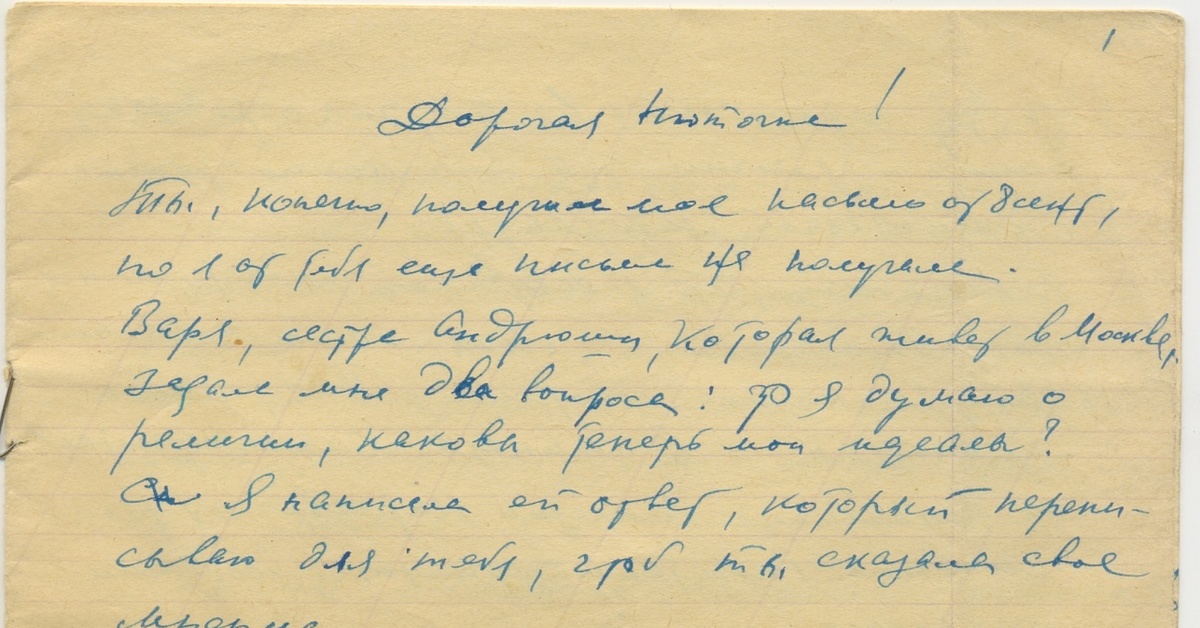 1
Дорогая Нюточка!
Ты, конечно, получила мое письмо от
но я от тебя еще письма не получала.
Варя, сестра Андрюши, которая живет в Москве,
задала мне два вопроса: что я думаю о
религии, каковы теперь мои идеалы?
Я написала ей ответ, который перепи-
сываю для тебя, чтоб ты сказала свое
мнение